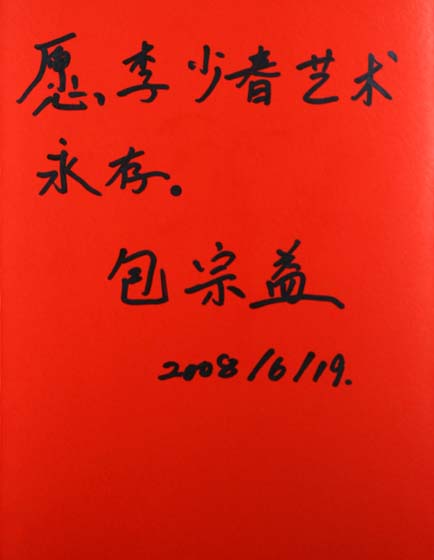 愿李少春艺术
永存。
包宗益
2008/6/19.